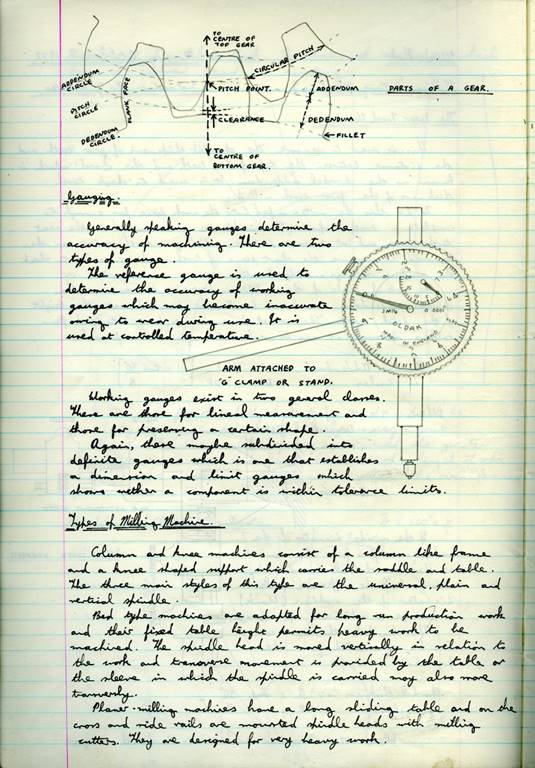 TO
CENTRE OF
TOP GEAR
CIRCULAR PITCH
ADDENDUM
CIRCLE
PITCH
CIRCLE
DEDENDUM
CIRCLE.
FLANK FACE
PITCH POINT.
CLEARANCE
ADDENDUM
DEDENDUM
FILLET
TO
CENTRE OF
BOTTOM GEAR.
PARTS OF A GEAR.
Gauging.
Generally speaking gauges determine the
accuracy of machining. There are two
types of gauge.
The reference gauge is used to
determine the accuracy of working
gauges which may become inaccurate
owing to wear during use. It is
used at controlled temperature.
OLDAK
MADE IN ENGLAND
ARM ATTACHED TO
'G' CLAMP OR STAND.
Working gauges exist in two general classes.
There are those for lineal measurement and
those for preserving a certain shape.
Again, these maybe subdivided into
definite gauges which is one that establishes
a dimension and limit gauges which
shows wether a component is within tolerance limits.
Types of Milling Machine.
Column and knee machines consist of a column like frame
and a knee shaped support which carries the saddle and table.
The three main styles of this type are the universal, plain and
vertical spindle.
Bed type machines are adapted for long run production work
and their fixed table height permits heavy work to be
machined. The spindle head is moved vertically in relation to
the work and transverse movement is provided by the table or
the sleeve in which the spindle is carried may also move
transversly.
Planer-milling machines have a long sliding table and on the
cross and side rails are mounted spindle heads with milling
cutters. They are designed for very heavy work.